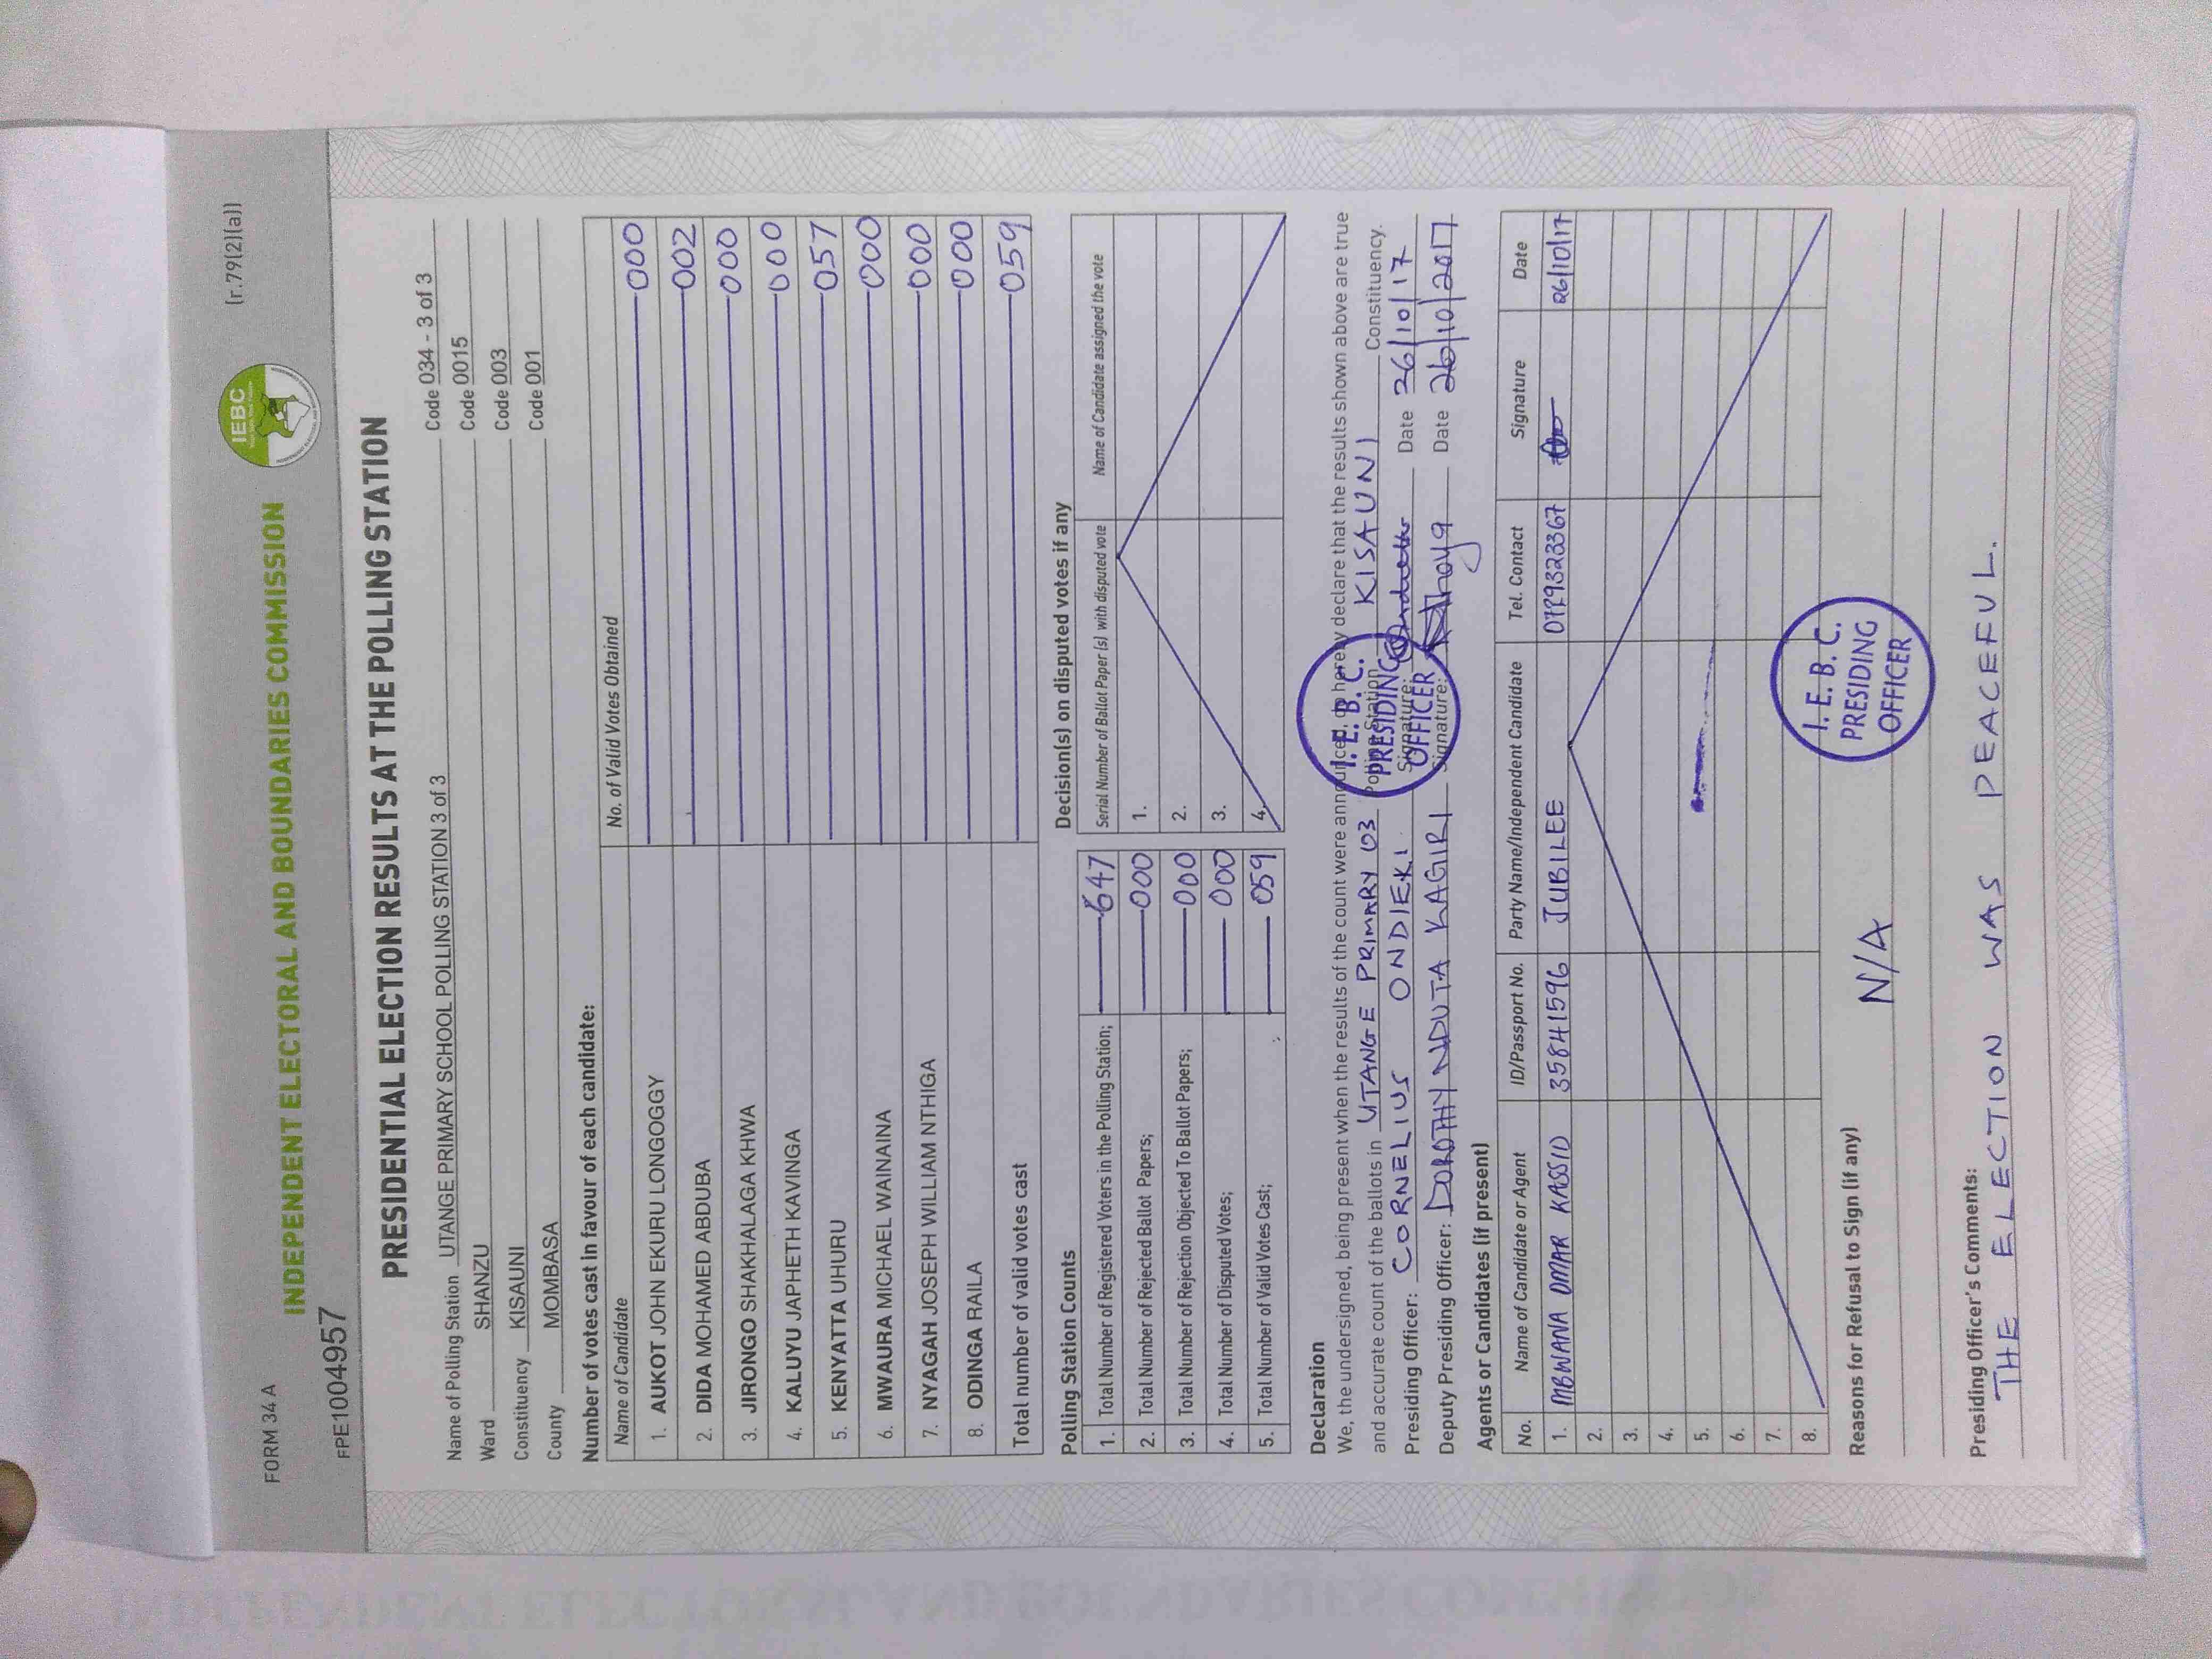 FORM 34 A
(r.79(2)(a))
INDEPENDENT ELECTORAL AND BOUNDARIES COMMISSION
IEBC
FPE1004957
PRESIDENTIAL ELECTION RESULTS AT THE POLLING STATION
Name of Polling Station UTANGE PRIMARY SCHOOL POLLING STATION 3 of 3 Code 034 - 3 of 3
Ward SHANZU Code 0015
Constituency KISAUNI Code 003
County MOMBASA Code 001
Number of votes cast in favour of each candidate:
Name of Candidate No. of Valid Votes Obtained
1. AUKOT JOHN EKURU LONGOGGY 000
2. DIDA MOHAMED ABDUBA 002
3. JIRONGO SHAKHALAGA KHWA 000
4. KALUYU JAPHETH KAVINGA 000
5. KENYATTA UHURU 057
6. MWAURA MICHAEL WAINAINA 000
7. NYAGAH JOSEPH WILLIAM NTHIGA 000
8. ODINGA RAILA 000
Total number of valid votes cast 059
Polling Station Counts
1. Total Number of Registered Voters in the Polling Station; 647
2. Total Number of Rejected Ballot Papers; 000
3. Total Number of Rejection Objected To Ballot Papers; 000
4. Total Number of Disputed Votes; 000
5. Total Number of Valid Votes Cast; 059
Decision(s) on disputed votes if any
Serial Number of Ballot Paper (s) with disputed vote Name of Candidate assigned the vote
1.
2.
3.
4.
Declaration
We, the undersigned, being present when the results of the count were announced, do hereby declare that the results shown above are true
and accurate count of the ballots in UTANGE PRIMARY 03 Polling Station KISAUNI Constituency.
Presiding Officer: CORNELIUS ONDIEKI Signature: Date 26/10/17
Deputy Presiding Officer: DOROTHY NDUTA KAGIRI Signature: Date 26/10/2017
I. E. B. C.
PRESIDING
OFFICER
Agents or Candidates (if present)
No. Name of Candidate or Agent ID/Passport No. Party Name/Independent Candidate Tel. Contact Signature Date
1. MBWANA OMAR KASSID 35841596 JUBILEE 0729323367 26/10/17
2.
3.
4.
5.
6.
7.
8.
I. E. B. C.
PRESIDING
OFFICER
Reasons for Refusal to Sign (if any)
N/A
Presiding Officer's Comments:
THE ELECTION WAS PEACEFUL.